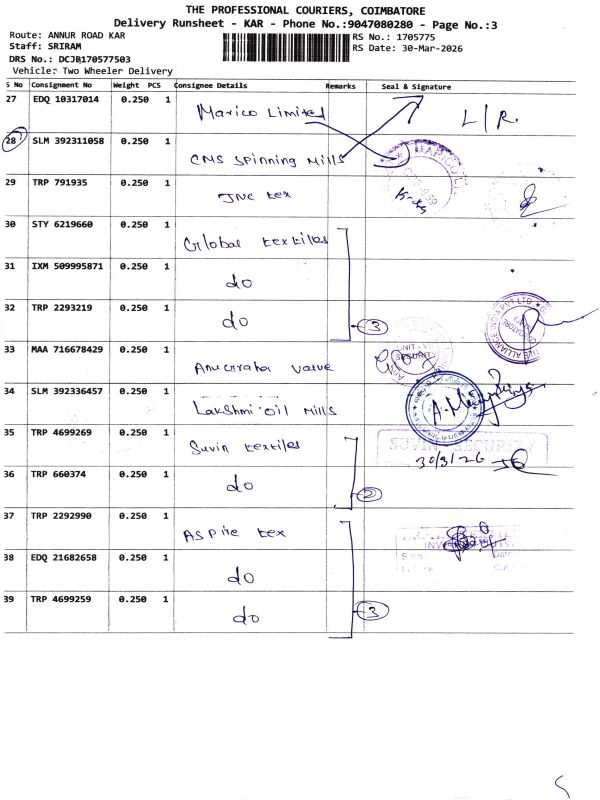 THE PROFESSIONAL COURIERS, COIMBATORE
Delivery Runsheet - KAR - Phone No.:9047080280 - Page No.:3
Route: ANNUR ROAD KAR
RS No.: 1705775
Staff: SRIRAM
RS Date: 30-Mar-2026
DRS No.: DCJB170577503
Vehicle: Two Wheeler Delivery
S No Consignment No Weight PCS Consignee Details Remarks Seal & Signature
27 EDQ 10317014 0.250 1 Marico Limited L/R.
28 SLM 392311058 0.250 1 CMS Spinning Mills
29 TRP 791935 0.250 1 JNC tex
30 STY 6219660 0.250 1 Global textiles
31 IXM 509995871 0.250 1 do
32 TRP 2293219 0.250 1 do 3
33 MAA 716678429 0.250 1 Anugraha valve
34 SLM 392336457 0.250 1 Lakshmi Oil Mills
35 TRP 4699269 0.250 1 Suvin textiles
SUVIN SECURITY
30/3/26
36 TRP 660374 0.250 1 do 2
37 TRP 2292990 0.250 1 Aspire tex
38 EDQ 21682658 0.250 1 do
39 TRP 4699259 0.250 1 do 3